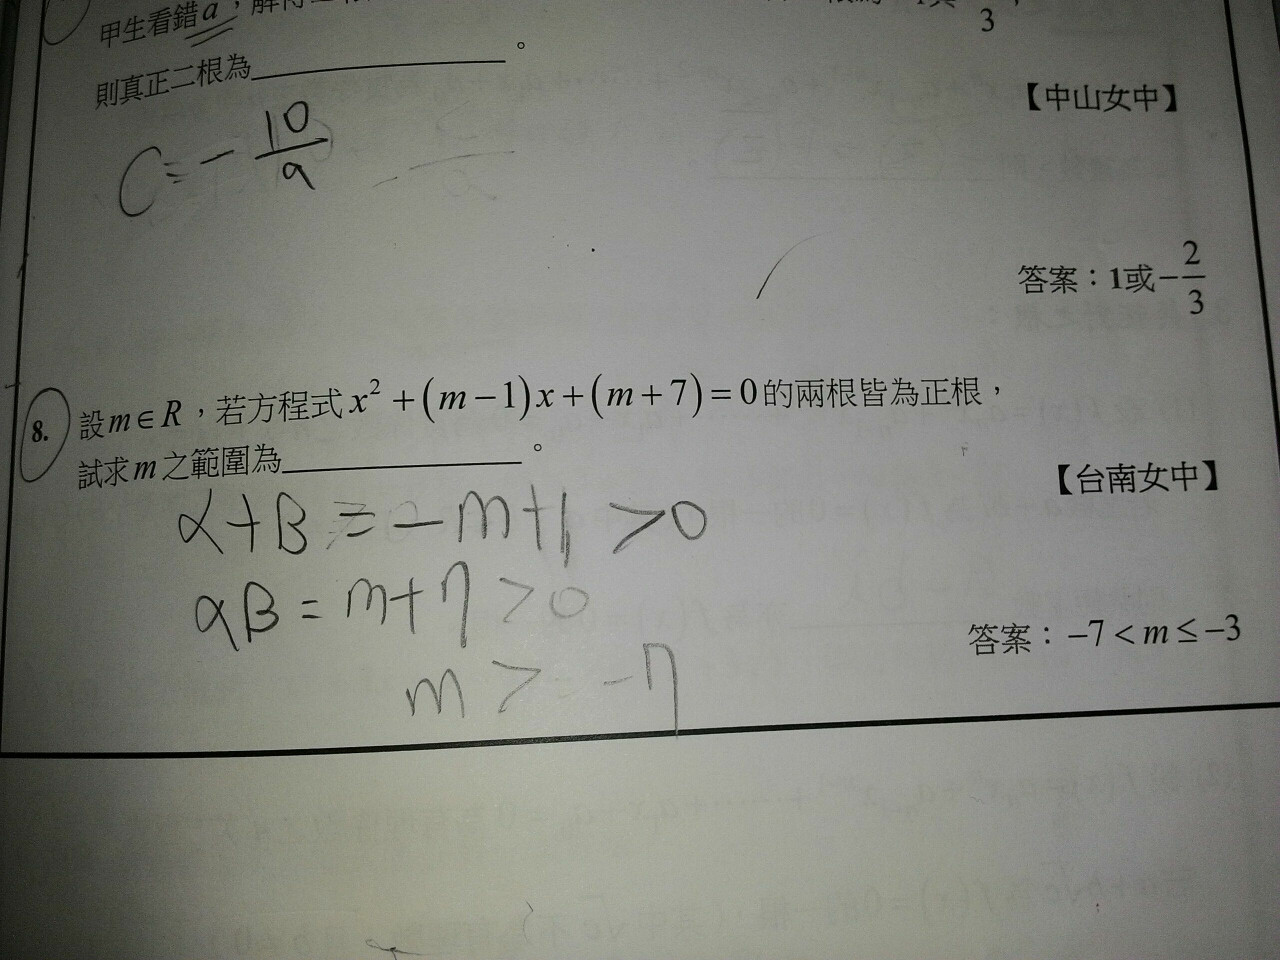 甲生看錯a，解得二根
3
則真正二根為__________。
【中山女中】
C = - 10/a
答案：1或-2/3
8. 設m∈R，若方程式x²+(m-1)x+(m+7)=0的兩根皆為正根，
試求m之範圍為__________。
【台南女中】
α+B = -m+1 >0
αB = m+7 >0
m > -7
答案：-7<m≤-3